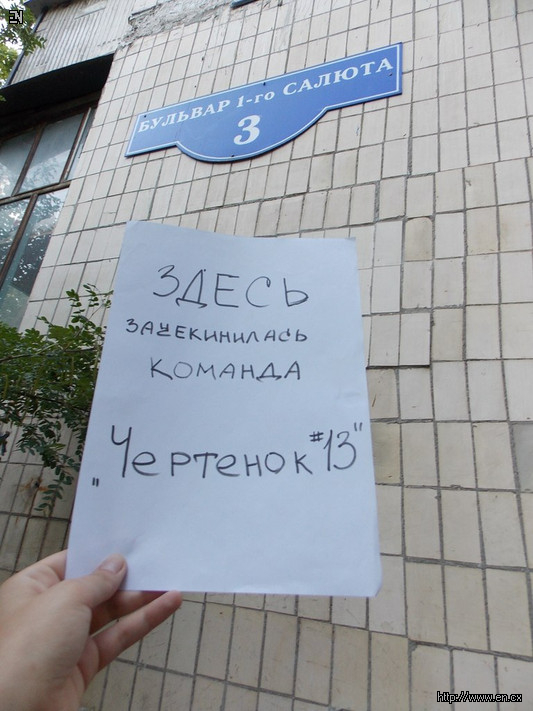 EN
БУЛЬВАР 1-го САЛЮТА
3
ЗДЕСЬ
ЗАЧЕКИНИЛАСЬ
КОМАНДА
„Чертенок #13"
http://www.en.cx